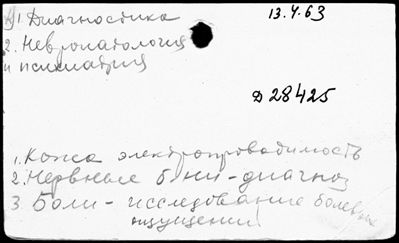 1. Диагностика
13.4.63
2. Невропатология
и психиатрия
Д 28425
1. Кожа электропроводимость
2. Нервные б-ни - диагноз
3 Боли - исследование болевых
ощущений